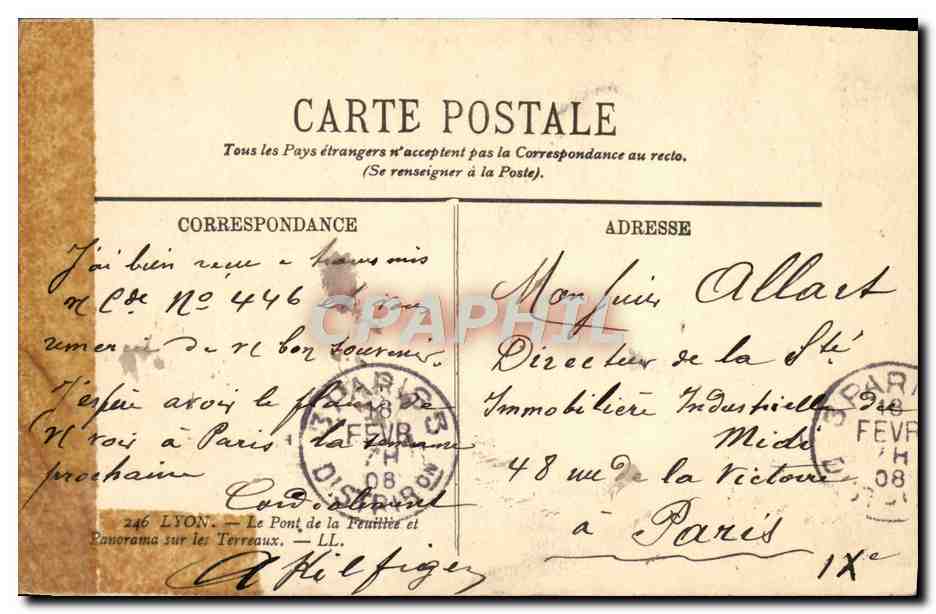 CARTE POSTALE
Tous les Pays étrangers n'acceptent pas la Correspondance au recto.
(Se renseigner à la Poste).
CORRESPONDANCE
J'ai bien reçu e transmis
v/ Cde No 446 et vous
remercie de v/ bon souvenir.
J'espère avoir le plaisir de
v/ voir à Paris la semaine
prochaine
Cordialement
246 LYON. — Le Pont de la Feuillée et
Panorama sur les Terreaux. — LL.
A Kilfiger
ADRESSE
Monsieur Allart
Directeur de la Sté
Immobilière Industrielle du
Midi
48 rue de la Victoire
à Paris
IXe
3 PARIS 3
18
FEVR
7H
08
DISTRIBON
3 PARI
18
FEVR
7H
08
CPAPHIL